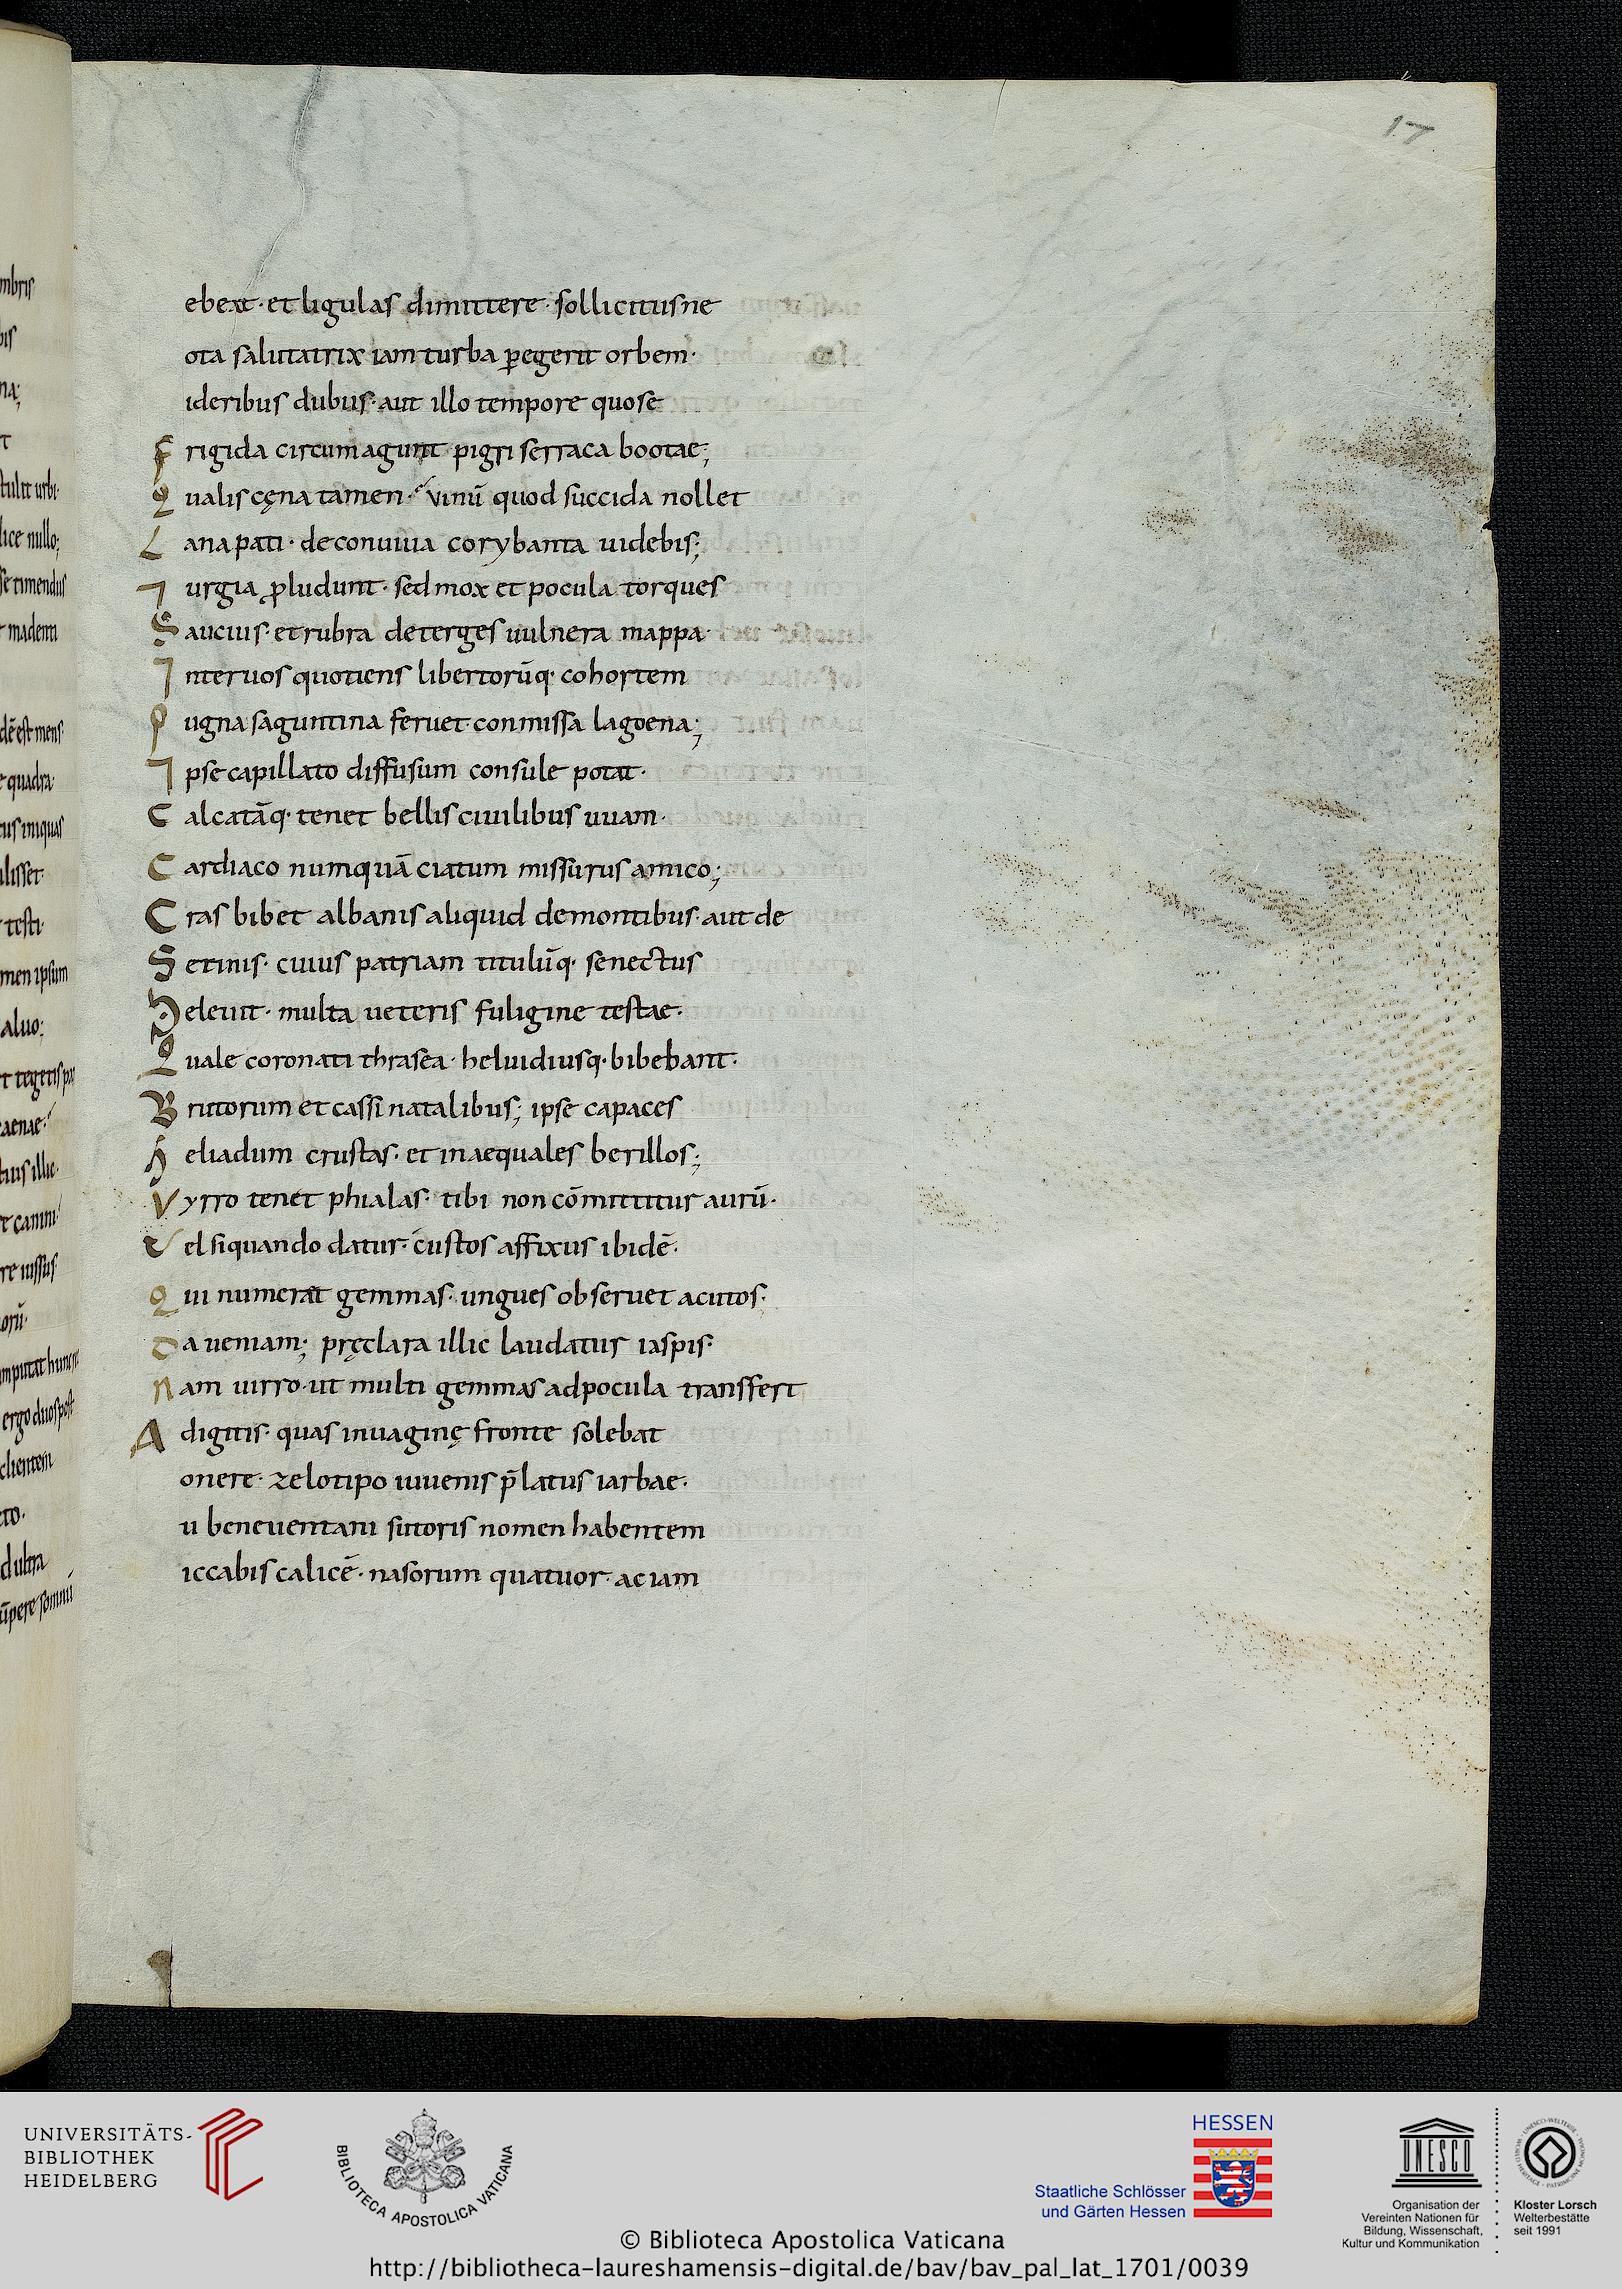 17
ebeat· et ligulas dimittere· sollicitus ne
ota salutatrix iam turba ꝑegerit orbem·
ideribus dubus· aut illo tempore quo se
F rigida circumagunt pigri serraca bootae;
Q ualis cęna tamen· vinū quod succida nollet
L ana pati· de conuiua corybanta uidebis;
I urgia ꝓludunt· sed mox et pocula torques
S aucius· et rubra deterges uulnera mappa·
I nter uos quotiens libertorūq· cohortem
P ugna saguntina feruet conmissa lagoena;
I pse capillato diffusum consule potat·
C alcatāq· tenet bellis ciuilibus uuam·
C ardiaco numquā ciatum missurus amico;
C ras bibet albanis aliquid de montibus· aut de
S etinis· cuius patriam titulūq· senectus
D eleuit· multa ueteris fuligine testae·
Q uale coronati thrasea· heluidiusq· bibebant·
B rutorum et cassi natalibus; ipse capaces
H eliadum crustas· et inaequales berillos;
V yrro tenet phialas· tibi non cōmittitur aurū·
V el si quando datur· custos affixus ibidē·
Q ui numerat gemmas· ungues obseruet acutos·
D a ueniam; pręclara illic laudatur iaspis·
N am uirro· ut multi gemmas ad pocula transfert
A digitis· quas in uaginę fronte solebat
onere· zelotipo iuuenis p̄latus iarbae·
u beneuentani sutoris nomen habentem
iccabis calicē· nasorum quatuor· ac iam
UNIVERSITÄTS-
BIBLIOTHEK
HEIDELBERG
BIBLIOTECA APOSTOLICA VATICANA
HESSEN
Staatliche Schlösser
und Gärten Hessen
UNESCO
Organisation der
Vereinten Nationen für
Bildung, Wissenschaft,
Kultur und Kommunikation
Kloster Lorsch
Welterbestätte
seit 1991
© Biblioteca Apostolica Vaticana
http://bibliotheca-laureshamensis-digital.de/bav/bav_pal_lat_1701/0039